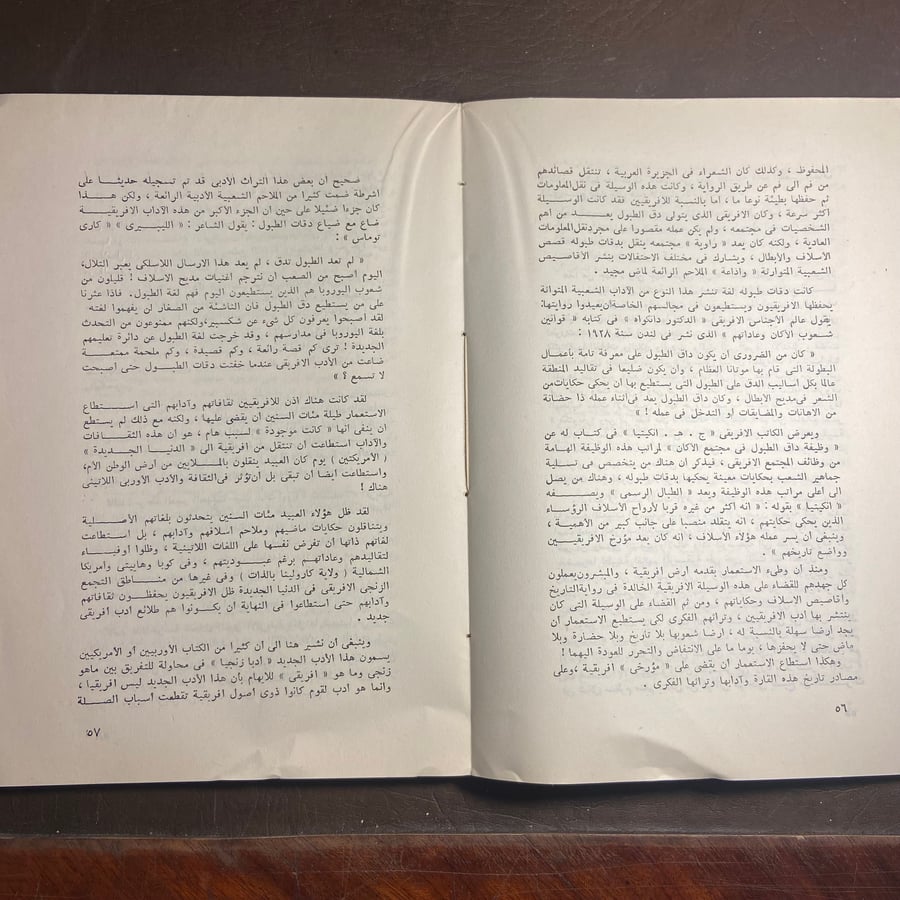 المحفوظ ، وكذلك كان الشعراء فى الجزيرة العربية ، تنتقل قصائدهم
من فم الى فم عن طريق الرواية ، وكانت هذه الوسيلة فى نقل المعلومات
ثم حفظها بطيئة نوعا ما ، أما بالنسبة للافريقيين فقد كانت الوسيلة
أكثر سرعة ، وكان الافريقى الذى يتولى دق الطبول يعد من أهم
الشخصيات فى مجتمعه ، ولم يكن عمله مقصورا على مجرد نقل المعلومات
العادية ، ولكنه كان يعد « راوية » مجتمعه ينقل بدقات طبوله قصص
الاسلاف والأبطال ، ويشارك فى مختلف الاحتفالات بنشر الأقاصيص
الشعبية المتوارثة « واذاعة » الملاحم الرائعة لماض مجيد .
كانت دقات طبوله لغة تنشر هذا النوع من الآداب الشعبية المتوائة
يحفظها الافريقيون ويستطيعون فى مجالسهم الخاصة أن يعيدوا روايتها:
يقول عالم الأجناس الافريقى « الدكتور دانكواه » فى كتابه « قوانين
شعوب الأكان وعاداتهم » الذى نشر فى لندن سنة ١٩٢٨ :
« كان من الضرورى أن يكون داق الطبول على معرفة تامة بأعمال
البطولة التى قام بها موتانا العظام ، وأن يكون ضليعا فى تقاليد المنطقة
عالما بكل أساليب الدق على الطبول التى يستطيع بها أن يحكى حكايات من
الشعر فى مديح الأبطال ، وكان داق الطبول يعد فى أثناء عمله ذا حصانة
من الاهانات والمضايقات أو التدخل فى عمله ! »
ويعرض الكاتب الافريقى « ج . هـ . انكيتيا » فى كتاب له عن
« وظيفة داق الطبول فى مجتمع الأكان » لمراتب هذه الوظيفة الهامة
من وظائف المجتمع الافريقى ، فيذكر أن هناك من يتخصص فى تسلية
جماهير الشعب بحكايات معينة يحكيها بدقات طبوله ، وهناك من يصل
الى أعلى مراتب هذه الوظيفة ويعد « الطبال الرسمى » ويصفه
« انكيتيا » بقوله : « انه أكثر من غيره قربا لأرواح الأسلاف الرؤساء
الذين يحكى حكايتهم ، انه يتقلد منصبا على جانب كبير من الأهمية ،
وينبغى أن يسر عمله هؤلاء الأسلاف ، انه كان يعد مؤرخ الافريقيين
وواضع تاريخهم » .
ومنذ أن وطىء الاستعمار بقدمه أرض أفريقية ، والمبشرون يعملون
كل جهدهم للقضاء على هذه الوسيلة الافريقية الخالدة فى رواية التاريخ
وأقاصيص الاسلاف وحكاياتهم ، ومن ثم القضاء على الوسيلة التى كان
ينتشر بها أدب الافريقيين ، وتراثهم الفكرى لكى يستطيع الاستعمار أن
يجد أرضا سهلة بالنسبة له ، أرضا شعوبها بلا تاريخ وبلا حضارة وبلا
ماض حتى لا يحفزها ، يوما ما على الانتفاض والتحرر للعودة اليهما !
وهكذا استطاع الاستعمار أن يقضى على « مؤرخى » افريقية ، وعلى
مصادر تاريخ هذه القارة وآدابها وتراثها الفكرى .
٥٦
صحيح أن بعض هذا التراث الأدبى قد تم تسجيله حديثا على
أشرطة ضمت كثيرا من الملاحم الشعبية الأدبية الرائعة ، ولكن هذا
كان جزءا ضئيلا على حين أن الجزء الأكبر من هذه الآداب الافريقية
ضاع مع ضياع دقات الطبول : يقول الشاعر : « الليبيرى » « كارى
توماس » :
« لم تعد الطبول تدق ، لم يعد هذا الارسال اللاسلكى يعبر التلال،
اليوم أصبح من الصعب أن نترجم أغنيات مديح الأسلاف ! قليلون من
شعوب اليوروبا هم الذين يستطيعون اليوم فهم لغة الطبول. فاذا عثرنا
على من يستطيع دق الطبول فان الناشئة من الصغار لن يفهموا لغته
لقد أصبحوا يعرفون كل شىء عن شكسبير،ولكنهم ممنوعون من التحدث
بلغة اليوروبا فى مدارسهم ، وقد خرجت لغة الطبول عن دائرة تعليمهم
الجديدة ! ترى كم قصة رائعة ، وكم قصيدة ، وكم ملحمة ممتعة
ضاعت من الأدب الافريقى عندما خفتت دقات الطبول حتى أصبحت
لا تسمع ؟ »
لقد كانت هناك اذن للافريقيين ثقافاتهم وآدابهم التى استطاع
الاستعمار طيلة مئات السنين أن يقضى عليها ، ولكنه مع ذلك لم يستطع
أن ينفى أنها « كانت موجودة » لسبب هام ، هو أن هذه الثقافات
والآداب استطاعت أن تنتقل من أفريقية الى « الدنيا الجديدة »
( الأمريكتين ) يوم كان العبيد ينقلون بالملايين من أرض الوطن الأم،
واستطاعت أيضا أن تبقى بل أن تؤثر فى الثقافة والأدب الأوربى اللاتينى
هناك !
لقد ظل هؤلاء العبيد مئات السنين يتحدثون بلغاتهم الأصلية
ويتناقلون حكايات ماضيهم وملاحم أسلافهم وآدابهم ، بل استطاعت
لغاتهم ذاتها أن تفرض نفسها على اللغات اللاتينية ، وظلوا أوفياء
لتقاليدهم وعاداتهم برغم عبوديتهم ، وفى كوبا وهاييتى وأمريكا
الشمالية ( ولاية كارولينا بالذات ) وفى غيرها من مناطق التجمع
الزنجى الافريقى فى الدنيا الجديدة ظل الافريقيون يحفظون ثقافاتهم
وآدابهم حتى استطاعوا فى النهاية أن يكونوا هم طلائع أدب أفريقى
جديد .
وينبغى أن نشير هنا الى أن كثيرا من الكتاب الأوربيين أو الأمريكيين
يسمون هذا الأدب الجديد « أدبا زنجيا » فى محاولة للتفريق بين ماهو
زنجى وما هو « أفريقى » للايهام بأن هذا الأدب الجديد ليس أفريقيا ،
وانما هو أدب لقوم كانوا ذوى أصول افريقية تقطعت أسباب الصلة
٥٧